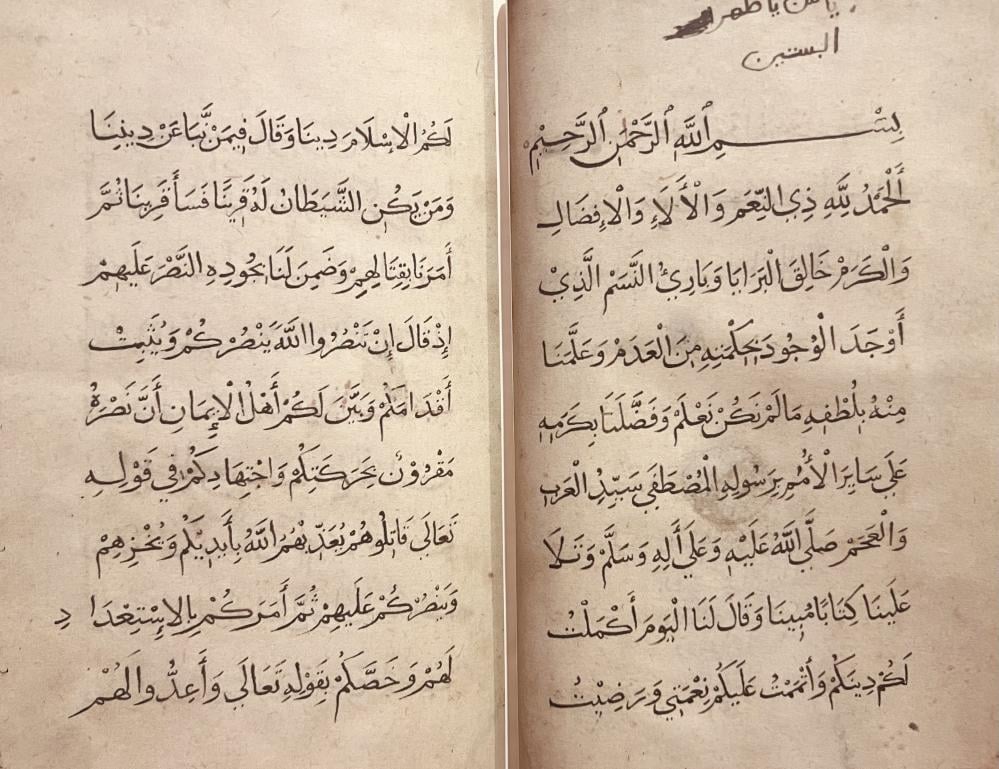 البستين
بِسْمِ اللَّهِ الرَّحْمٰنِ الرَّحِيْمِ
اَلْحَمْدُ لِلَّهِ ذِي النِّعَمِ وَالْأَلَاءِ وَالْإِفضَالِ
وَالْكَرَمْ خَالِقَ الْبَرَايَا وَبَارِئُ النَّسَمْ الَّذِيْ
أَوْجَدَ الْوُجُودَ بِحِكْمَتِهِ مِنَ الْعَدَمْ وَعَلَّمَنَا
مِنْهُ بِلُطْفِهِ مَا لَمْ نَكُنْ نَعْلَمْ وَفَضَّلَنَا بِكَرَمِهِ
عَلَى سَايِرَ الْأُمَمِ بِرَسُولِهِ الْمُصْطَفَى سَيِّدِ الْعَرَبِ
وَالْعَجَمْ صَلَّى اللَّهُ عَلَيْهِ وَعَلَى أَلِهِ وَسَلَّمْ وَتَلَا
عَلَيْنَا كِتَابًا مُبِينَا وَقَالَ لَنَا الْيَوْمَ أَكْمَلْتُ
لَكُمْ دِينَكُمْ وَأَتْمَمْتُ عَلَيْكُمْ نِعْمَتِي وَرَضِيْتُ
لَكُمُ الْإِسْلَامَ دِينَا وَقَالَ فِيمَنْ نَبَا عَنْ دِينِنَا
وَمَنْ يَكُنِ الشَّيَطَانُ لَهُ قَرِينًا فَسَأَ قَرِينَا ثُمَّ
أَمَرَنَا بِقِتَالِهِمْ وَضَمِنَ لَنَا بِجُودِهِ النَّصْرَ عَلَيْهِمْ
إِذْ قَالَ إِنْ تَنْصُرُوا اللَّهَ يَنْصُرْكُمْ وَيُثَبِتْ
أَقْدَامَكُمْ وَبَيَّنَ لَكُمْ أَهْلَ الْإِيمَانِ أَنَّ نَصْرَهُ
مَقْرُونٌ بِحَرَكَتِكُمْ وَاجْتِهَادِكُمْ فِي قَوْلِهِ
تَعَالَى قَاتِلُوهُمْ يُعَذِّبْهُمُ اللَّهُ بِأَيدِيكُمْ وَيُخْزِهِمْ
وَيَنْصُرْكُمْ عَلَيهِمْ ثُمَّ أَمَرَكُمْ بِالاِسْتِعْدَادِ
لَهُمْ وَخَصَّكُمْ بِقَوْلِهِ تَعَالَى وَأَعِدُّوا لَهُمْ